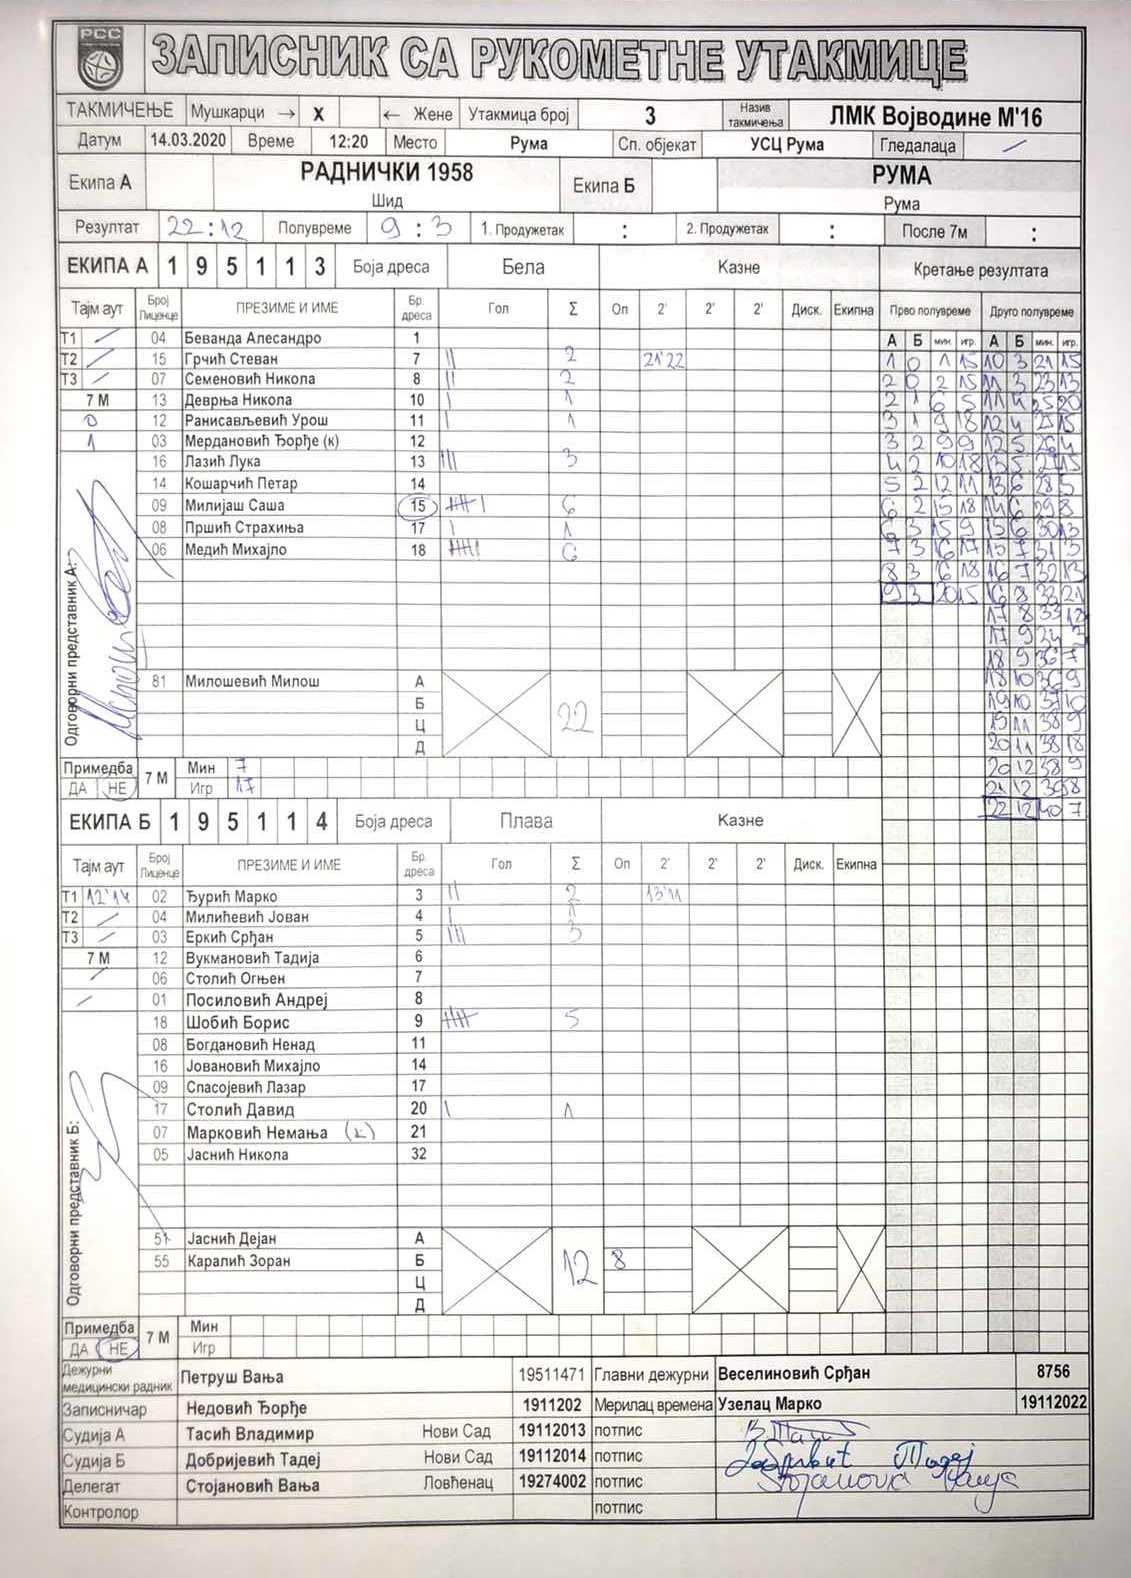 РСС
ЗАПИСНИК СА РУКОМЕТНЕ УТАКМИЦЕ
ТАКМИЧЕЊЕ Мушкарци → X ← Жене Утакмица број 3 Назив такмичења ЛМК Војводине М'16
Датум 14.03.2020 Време 12:20 Место Рума Сп. објекат УСЦ Рума Гледалаца /
Екипа А РАДНИЧКИ 1958 Шид Екипа Б РУМА Рума
Резултат 22:12 Полувреме 9:3 1. Продужетак : 2. Продужетак : После 7м :
ЕКИПА А 1 9 5 1 1 3 Боја дреса Бела Казне Кретање резултата
Тајм аут Број Лиценце ПРЕЗИМЕ И ИМЕ Бр. дреса Гол Σ Оп 2' 2' 2' Диск. Екипна Прво полувреме Друго полувреме
А Б мин. игр. А Б мин. игр.
Т1 / 04 Беванда Алесандро 1
Т2 / 15 Грчић Стеван 7 II 2 21'22
Т3 / 07 Семеновић Никола 8 II 2
7 М 13 Деврња Никола 10 I 1
0 12 Ранисављевић Урош 11 I 1
1 03 Мердановић Ђорђе (к) 12
16 Лазић Лука 13 III 3
14 Кошарчић Петар 14
09 Милијаш Саша 15 IIIII I 6
08 Пршић Страхиња 17 I 1
06 Медић Михајло 18 6
Одговорни представник А:
81 Милошевић Милош А
Б
22
Ц
Д
1 0 1 15 10 3 21 15
2 0 2 15 11 3 23 13
2 1 6 5 11 4 25 20
3 1 9 18 12 4 25 15
3 2 9 9 12 5 26 4
4 2 10 18 13 5 27 15
5 2 12 11 13 6 28 5
6 2 15 18 14 6 29 8
6 3 15 9 15 6 30 13
7 3 16 17 15 7 31 3
8 3 16 18 16 7 32 13
9 3 20 15 16 8 33 21
17 8 33 12
17 9 34 3
18 9 36 7
18 10 36 9
19 10 37 10
19 11 38 9
20 11 38 18
20 12 38 9
21 12 39 8
22 12 40 7
Примедба ДА НЕ 7 М Мин 7
Игр 17
ЕКИПА Б 1 9 5 1 1 4 Боја дреса Плава Казне
Тајм аут Број Лиценце ПРЕЗИМЕ И ИМЕ Бр. дреса Гол Σ Оп 2' 2' 2' Диск. Екипна
Т1 12'14 02 Ђурић Марко 3 II 2 13'11
Т2 / 04 Милићевић Јован 4 I 1
Т3 / 03 Еркић Срђан 5 III 3
7 М 12 Вукмановић Тадија 6
/ 06 Столић Огњен 7
/ 01 Посиловић Андреј 8
18 Шобић Борис 9 IIIII 5
08 Богдановић Ненад 11
16 Јовановић Михајло 14
09 Спасојевић Лазар 17
17 Столић Давид 20 I 1
07 Марковић Немања (к) 21
05 Јаснић Никола 32
Одговорни представник Б:
51 Јаснић Дејан А
55 Каралић Зоран Б 12 8
Ц
Д
Примедба ДА НЕ 7 М Мин
Игр
Дежурни медицински радник Петруш Вања 19511471 Главни дежурни Веселиновић Срђан 8756
Записничар Недовић Ђорђе 1911202 Мерилац времена Узелац Марко 19112022
Судија А Тасић Владимир Нови Сад 19112013 потпис
Судија Б Добријевић Тадеј Нови Сад 19112014 потпис
Делегат Стојановић Вања Ловћенац 19274002 потпис
Контролор потпис